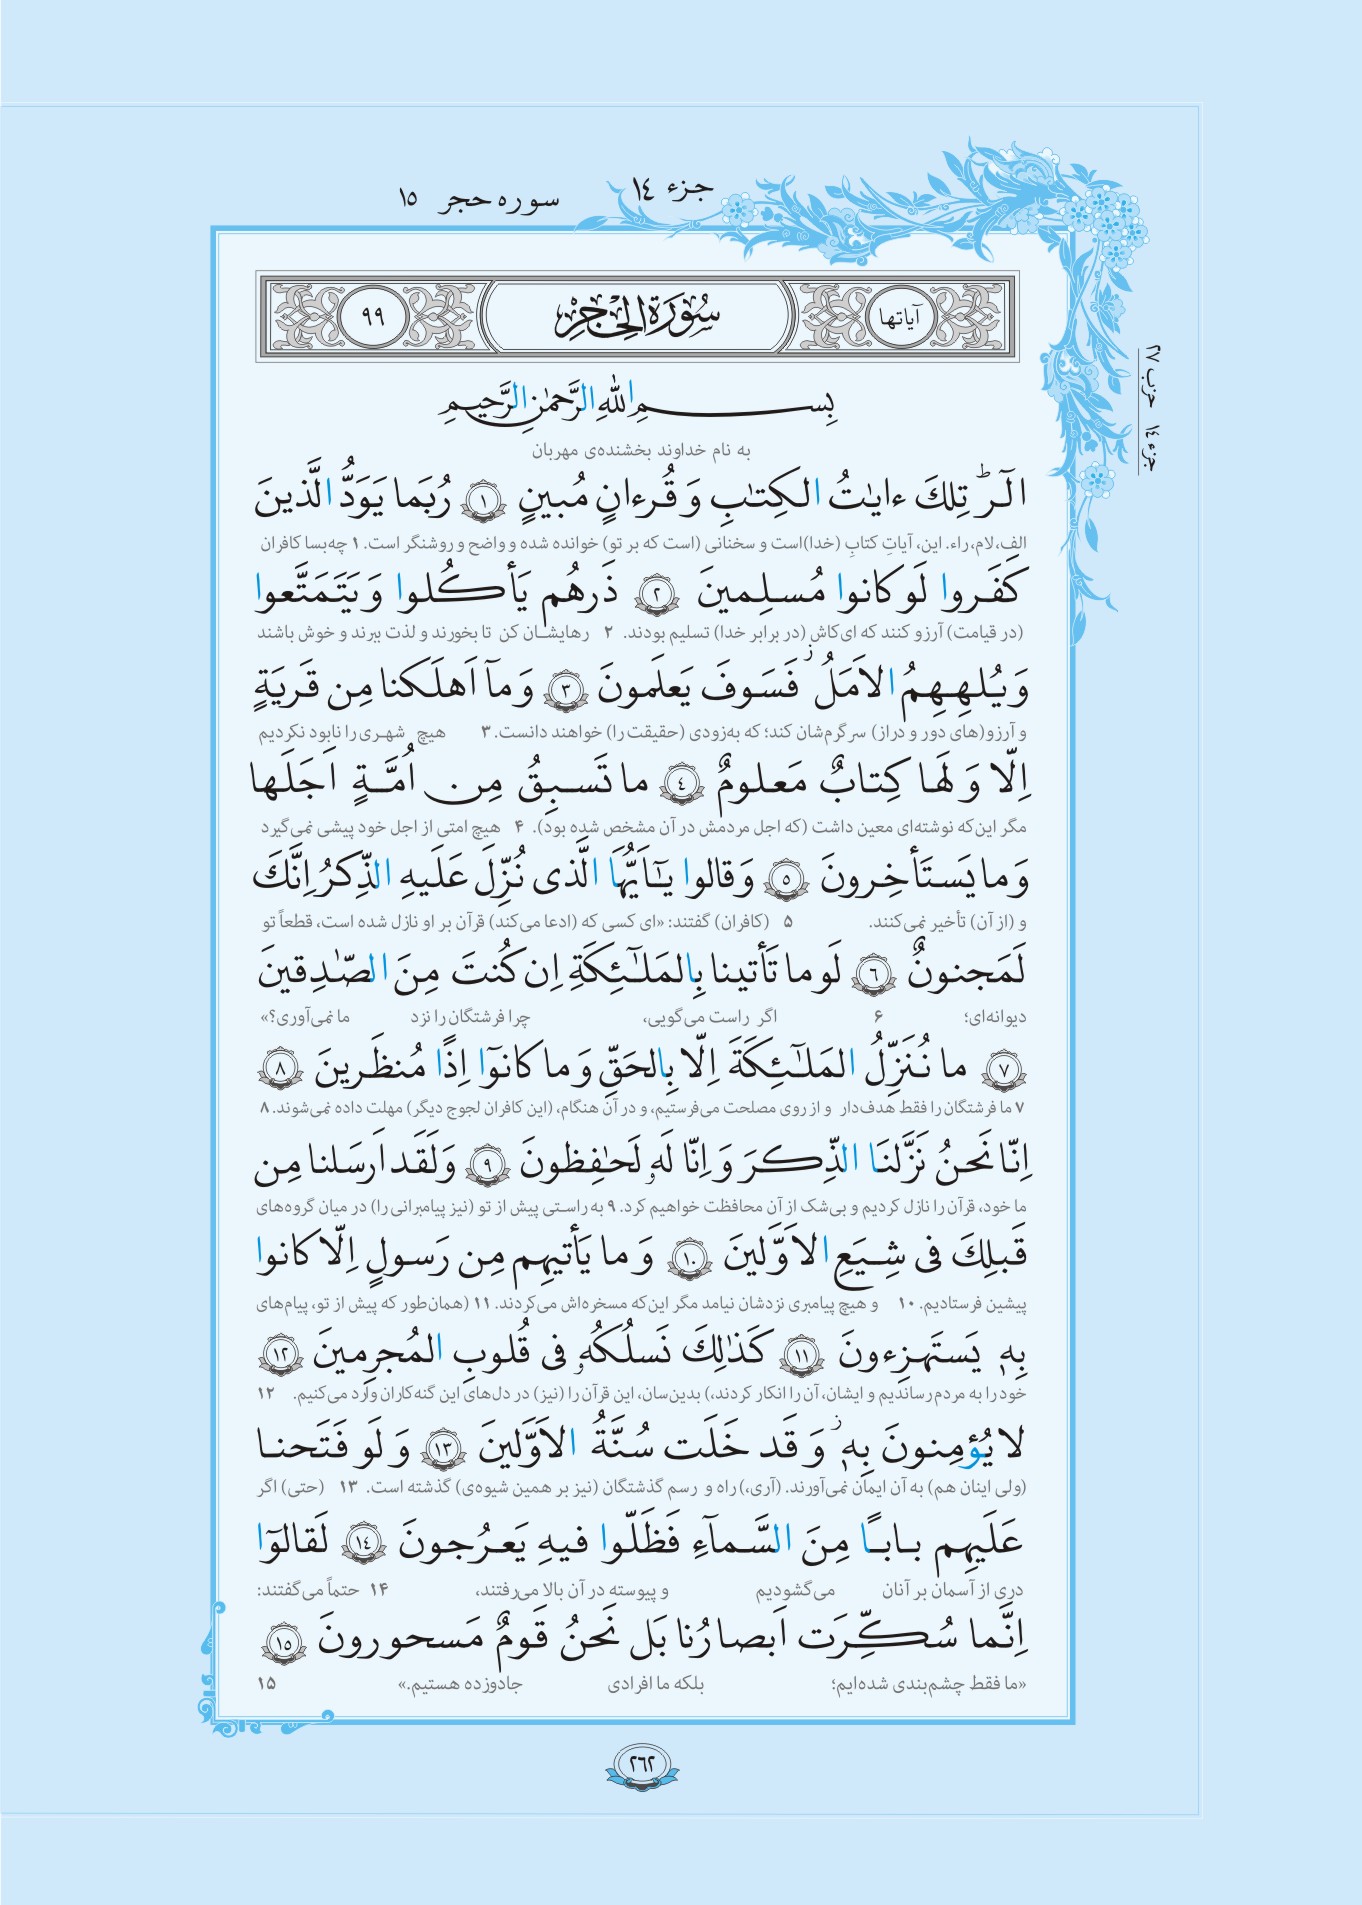 جزء ١٤
سوره حجر ١٥
جزء ١٤ حزب ٢٧
آیاتها سُورَةُ الحِجْرِ ٩٩
بِسمِ اللهِ الرَّحمٰنِ الرَّحیمِ
به نام خداوند بخشنده‌ی مهربان
الٓرٰ ۚ تِلكَ ءایٰتُ الكِتٰبِ وَ قُرءانٍ مُبینٍ ﴿١﴾ رُبَما یَوَدُّ الَّذینَ
الف، لام، راء. این، آیاتِ کتابِ (خدا)است و سخنانی (است که بر تو) خوانده شده و واضح و روشنگر است. ۱ چه‌بسا کافران
كَفَروا لَو كانوا مُسلِمینَ ﴿٢﴾ ذَرهُم یَأكُلوا وَ یَتَمَتَّعوا
(در قیامت) آرزو کنند که ای‌کاش (در برابر خدا) تسلیم بودند. ۲ رهایشان کن تا بخورند و لذت ببرند و خوش باشند
وَ یُلهِهِمُ الاَمَلُ ۖ فَسَوفَ یَعلَمونَ ﴿٣﴾ وَ مآ اَهلَكنا مِن قَریَةٍ
و آرزو(های دور و دراز) سرگرم‌شان کند؛ که به‌زودی (حقیقت را) خواهند دانست. ۳ هیچ شهری را نابود نکردیم
اِلّا وَ لَها كِتابٌ مَعلومٌ ﴿٤﴾ ما تَسبِقُ مِن اُمَّةٍ اَجَلَها
مگر این‌که نوشته‌ای معین داشت (که اجل مردمش در آن مشخص شده بود). ۴ هیچ امتی از اجل خود پیشی نمی‌گیرد
وَ ما یَستَأخِرونَ ﴿٥﴾ وَ قالوا یٰٓاَیُّهَا الَّذی نُزِّلَ عَلَیهِ الذِّكرُ اِنَّكَ
و (از آن) تأخیر نمی‌کنند. ۵ (کافران) گفتند: «ای کسی که (ادعا می‌کند) قرآن بر او نازل شده است، قطعاً تو
لَمَجنونٌ ﴿٦﴾ لَو ما تَأتینا بِالمَلٰٓئِكَةِ اِن كُنتَ مِنَ الصّٰدِقینَ
دیوانه‌ای؛ ۶ اگر راست می‌گویی، چرا فرشتگان را نزد ما نمی‌آوری؟»
﴿٧﴾ ما نُنَزِّلُ المَلٰٓئِكَةَ اِلّا بِالحَقِّ وَ ما كانوٓا اِذًا مُنظَرینَ ﴿٨﴾
۷ ما فرشتگان را فقط هدف‌دار و از روی مصلحت می‌فرستیم، و در آن هنگام، (این کافران لجوج دیگر) مهلت داده نمی‌شوند. ۸
اِنّا نَحنُ نَزَّلنَا الذِّكرَ وَ اِنّا لَهٗ لَحٰفِظونَ ﴿٩﴾ وَ لَقَد اَرسَلنا مِن
ما خود، قرآن را نازل کردیم و بی‌شک از آن محافظت خواهیم کرد. ۹ به راستی پیش از تو (نیز پیامبرانی را) در میان گروه‌های
قَبلِكَ فی شِیَعِ الاَوَّلینَ ﴿١٠﴾ وَ ما یَأتیهِم مِن رَسولٍ اِلّا كانوا
پیشین فرستادیم. ۱۰ و هیچ پیامبری نزدشان نیامد مگر این‌که مسخره‌اش می‌کردند. ۱۱ (همان‌طور که پیش از تو، پیام‌های
بِهٖ یَستَهزِءونَ ﴿١١﴾ كَذٰلِكَ نَسلُكُهٗ فی قُلوبِ المُجرِمینَ ﴿١٢﴾
خود را به مردم رساندیم و ایشان، آن را انکار کردند،) بدین‌سان، این قرآن را (نیز) در دل‌های این گنه‌کاران وارد می‌کنیم. ۱۲
لا یُؤمِنونَ بِهٖ ۖ وَ قَد خَلَت سُنَّةُ الاَوَّلینَ ﴿١٣﴾ وَ لَو فَتَحنا
(ولی اینان هم) به آن ایمان نمی‌آورند. (آری،) راه و رسم گذشتگان (نیز بر همین شیوه‌ی) گذشته است. ۱۳ (حتی) اگر
عَلَیهِم بابًا مِنَ السَّمآءِ فَظَلّوا فیهِ یَعرُجونَ ﴿١٤﴾ لَقالوٓا
دری از آسمان بر آنان می‌گشودیم و پیوسته در آن بالا می‌رفتند، ۱۴ حتماً می‌گفتند:
اِنَّما سُكِّرَت اَبصارُنا بَل نَحنُ قَومٌ مَسحورونَ ﴿١٥﴾
«ما فقط چشم‌بندی شده‌ایم؛ بلکه ما افرادی جادوزده هستیم.» ۱۵
٢٦٢